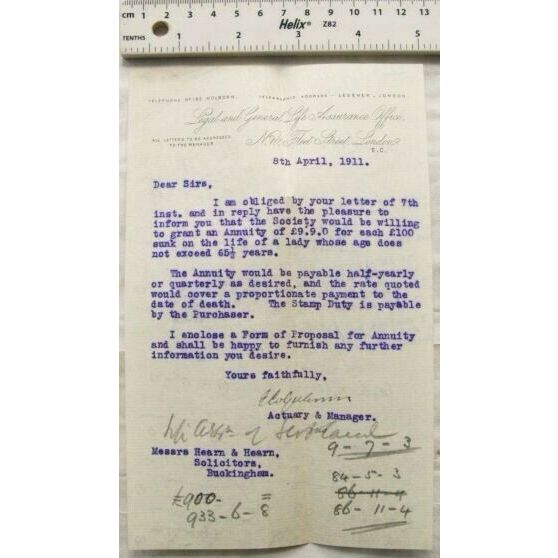 cm 1 2 3 4 5 6 7 8 9 10 11 12 13
TENTHS 1 2 3 4 5
Helix® Z82
TELEPHONE Nº 192 HOLBORN.
TELEGRAPHIC ADDRESS - LEGENER, LONDON
Legal and General Life Assurance Office,
ALL LETTERS TO BE ADDRESSED
TO THE MANAGER.
Nº 10 Fleet Street, London.
E.C.
8th April, 1911.
Dear Sirs,
I am obliged by your letter of 7th
inst. and in reply have the pleasure to
inform you that the Society would be willing
to grant an Annuity of £9.9.0 for each £100
sunk on the life of a lady whose age does
not exceed 65½ years.
The Annuity would be payable half-yearly
or quarterly as desired, and the rate quoted
would cover a proportionate payment to the
date of death. The Stamp Duty is payable
by the Purchaser.
I enclose a Form of Proposal for Annuity
and shall be happy to furnish any further
information you desire.
Yours faithfully,
Actuary & Manager.
of Scotland
9 - 7 - 3
Messrs Hearn & Hearn,
Solicitors,
Buckingham.
84 - 5 - 3
86 - 11 - 4
86 - 11 - 4
£900- =
933 - 6 - 8